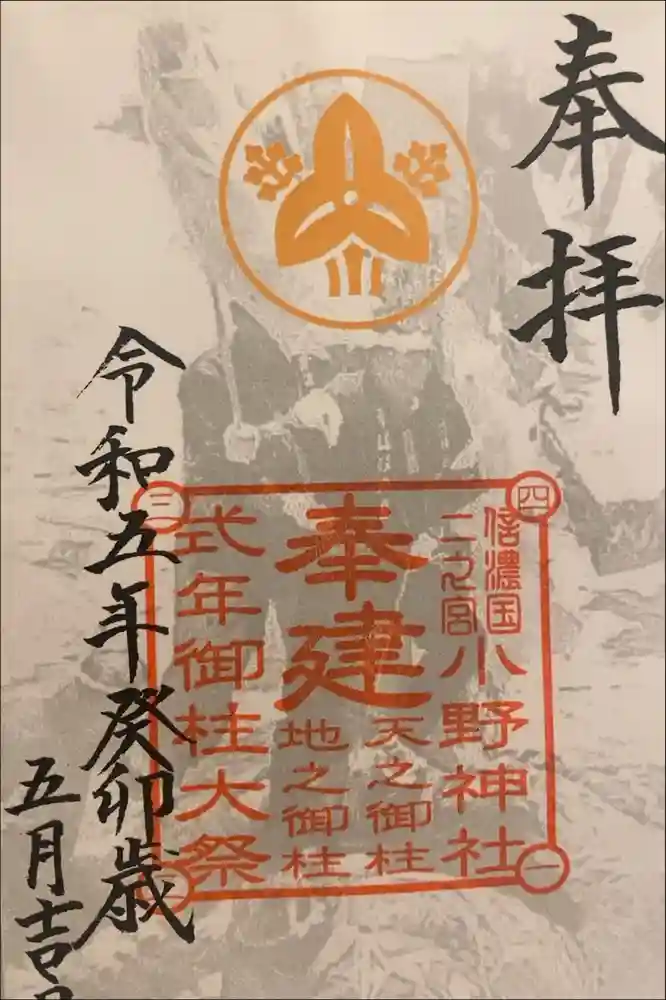 奉拝
四
信濃国
二之宮
小野神社
一
奉建
天之御柱
地之御柱
三
式年御柱大祭
二
令和五年癸卯歳
五月吉日